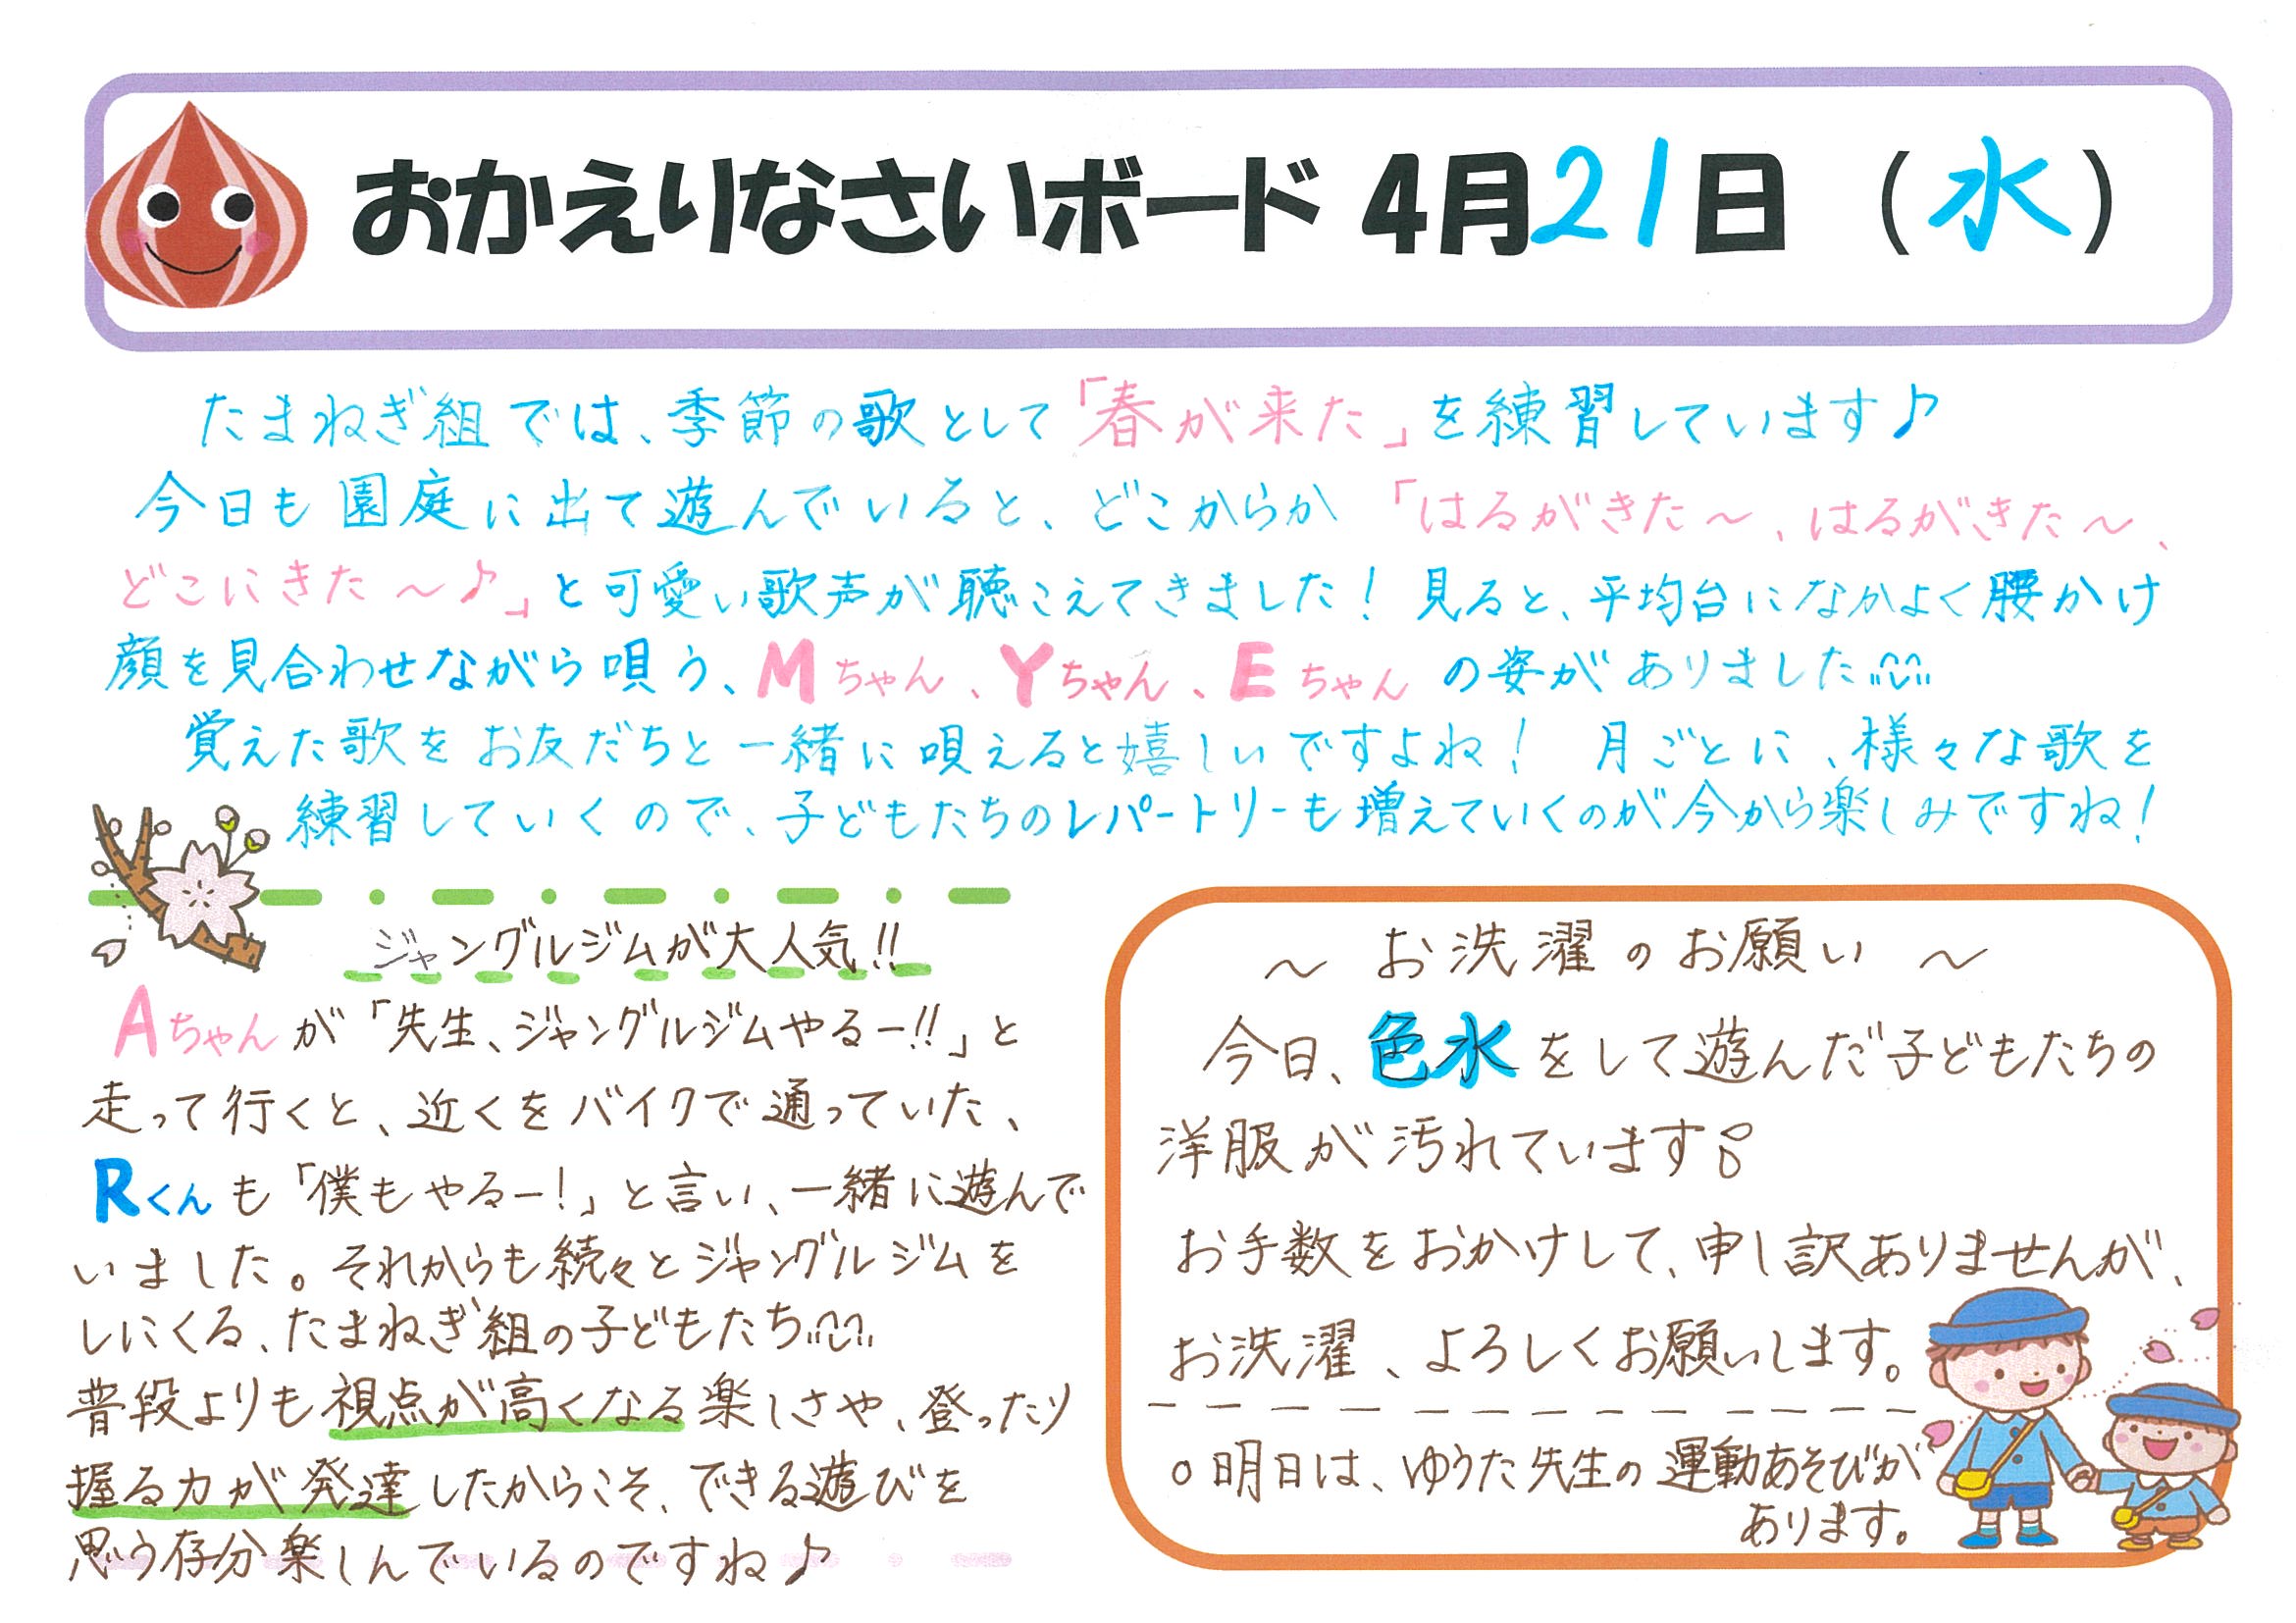 おかえりなさいボード 4月21日（水）
たまねぎ組では、季節の歌として「春が来た」を練習しています♪
今日も園庭に出て遊んでいると、どこからか「はるがきた～、はるがきた～、
どこにきた～♪」と可愛い歌声が聴こえてきました！見ると、平均台になかよく腰かけ
顔を見合わせながら唄う、Mちゃん、Yちゃん、Eちゃんの姿がありました
覚えた歌をお友だちと一緒に唄えると嬉しいですよね！月ごとに、様々な歌を
練習していくので、子どもたちのレパートリーも増えていくのが今から楽しみですね！
ジャングルジムが大人気!!
Aちゃんが「先生、ジャングルジムやるー!!」と
走って行くと、近くをバイクで通っていた、
Rくんも「僕もやるー！」と言い、一緒に遊んで
いました。それからも続々とジャングルジムを
しにくる、たまねぎ組の子どもたち
普段よりも視点が高くなる楽しさや、登ったり
握る力が発達したからこそ、できる遊びを
思う存分楽しんでいるのですね♪
～お洗濯のお願い～
今日、色水をして遊んだ子どもたちの
洋服が汚れています
お手数をおかけして、申し訳ありませんが、
お洗濯、よろしくお願いします。
○明日は、ゆうた先生の運動あそびが
あります。